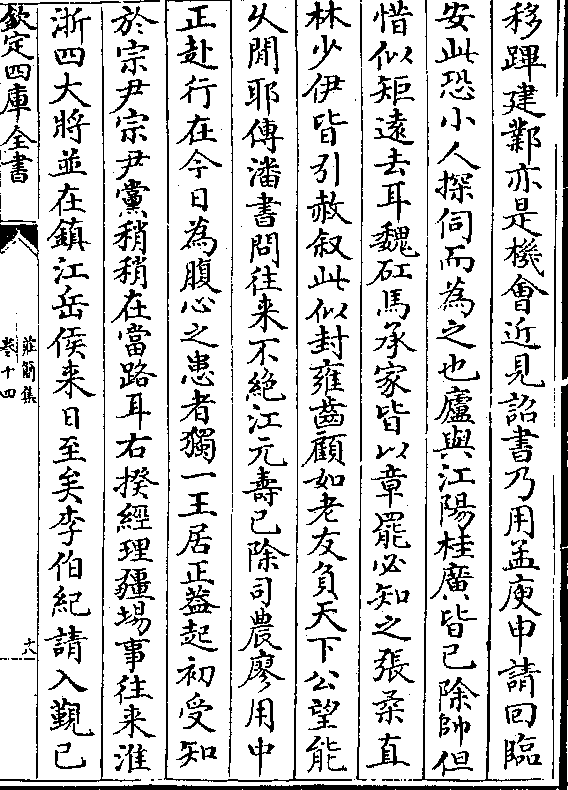 移蹕建鄴亦是機會近見詔書乃用孟庾申請回臨
安此恐小人探伺而為之也廬與江陽桂廣皆已除帥但
惜似矩遠去耳魏矼馬承家皆以章罷必知之張柔直
林少伊皆引赦叙此似封雍齒顧如老友負天下公望能
乆閒耶傳潘書問往来不絶江元壽已除司農廖用中
正赴行在今日為腹心之患者獨一王居正葢起初受知
於宗尹宗尹黨稍稍在當路耳右揆經理疆埸事往来淮
浙四大將並在鎮江岳侯来日至矣李伯紀請入覲已
欽定四庫全書
莊簡集
卷十四
十八